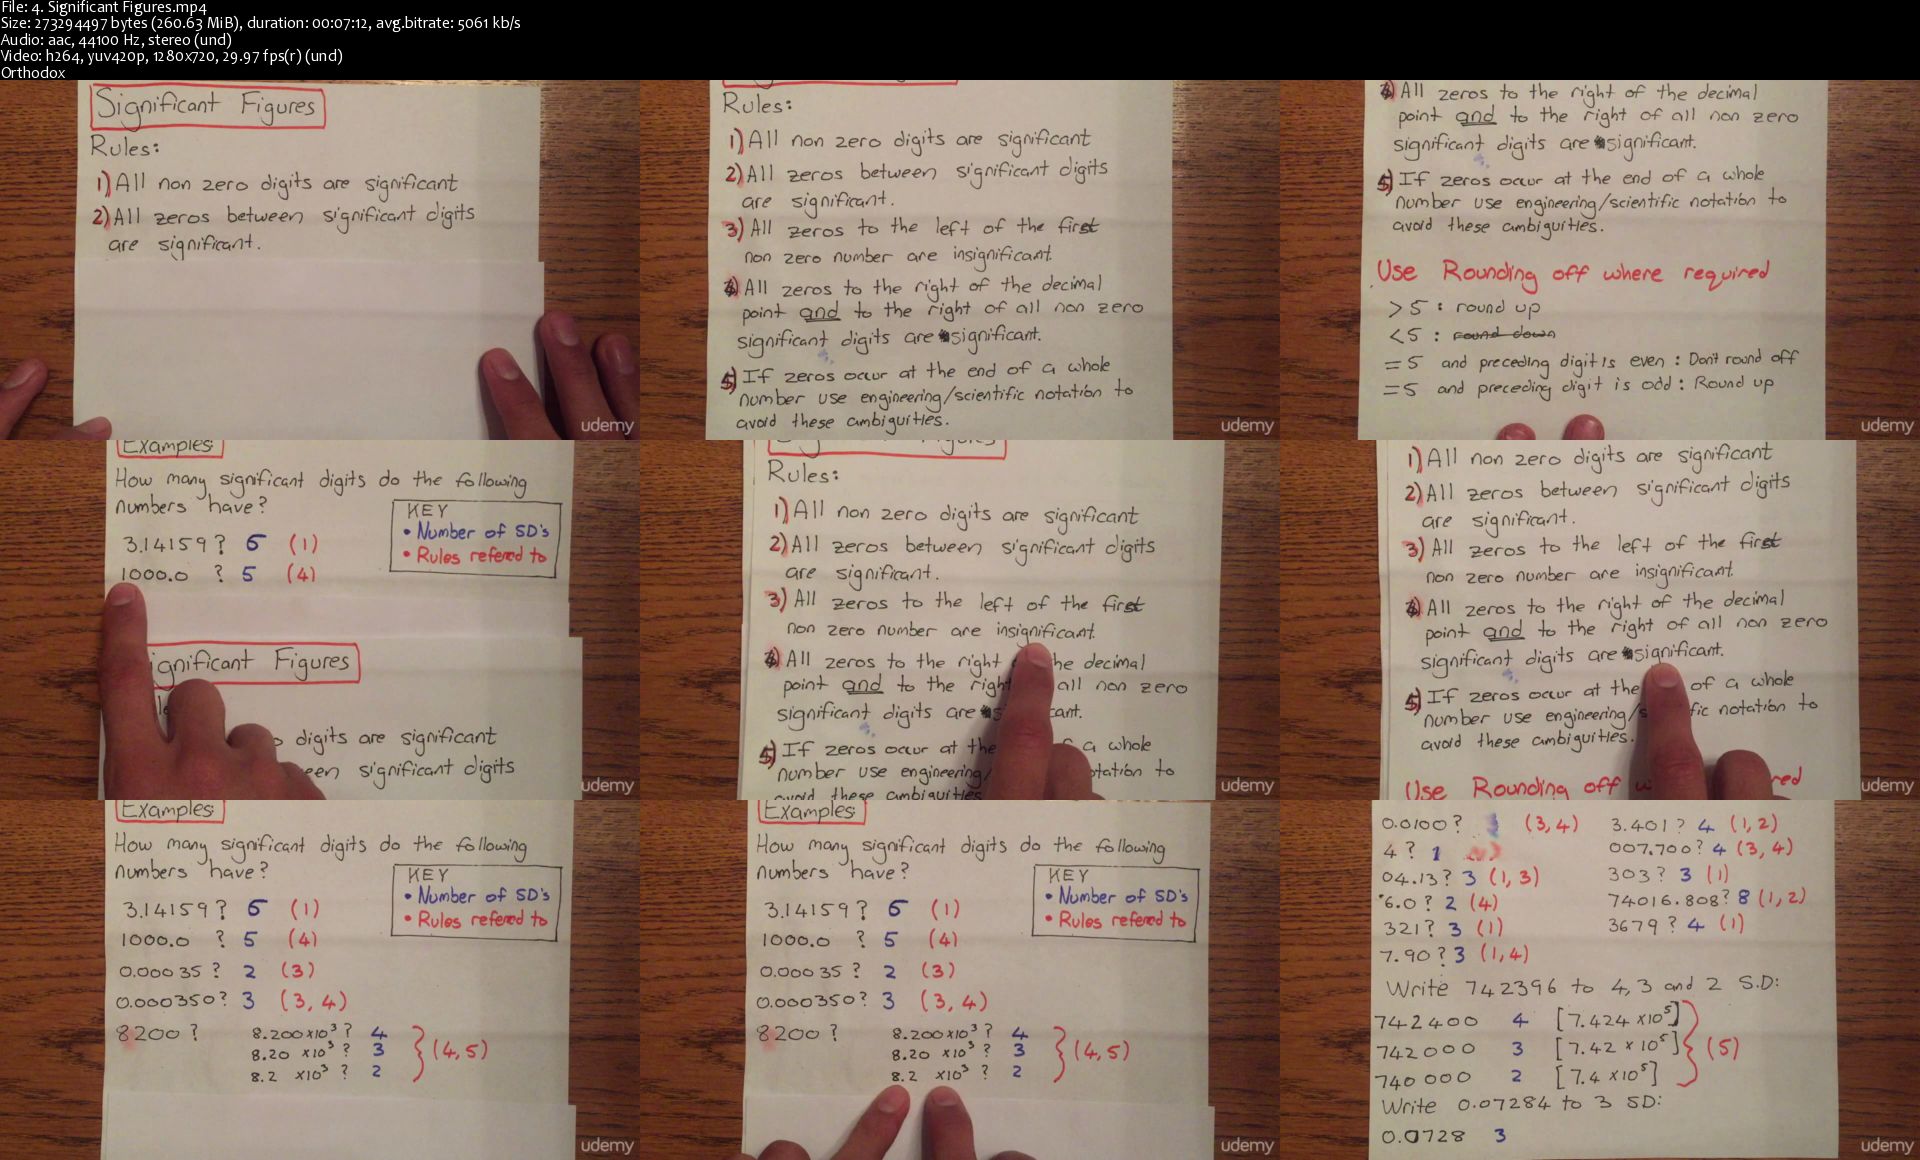 File: 4. Significant Figures.mp4
Size: 273294497 bytes (260.63 MiB), duration: 00:07:12, avg.bitrate: 5061 kb/s
Audio: aac, 44100 Hz, stereo (und)
Video: h264, yuv420p, 1280x720, 29.97 fps(r) (und)
Orthodox
Significant Figures
Rules:
1) All non zero digits are significant
2) All zeros between significant digits
are significant.
udemy
Rules:
1) All non zero digits are significant
2) All zeros between significant digits
are significant.
3) All zeros to the left of the first
non zero number are insignificant.
4) All zeros to the right of the decimal
point and to the right of all non zero
significant digits are significant.
5) If zeros occur at the end of a whole
number use engineering/scientific notation to
avoid these ambiguities.
udemy
4) All zeros to the right of the decimal
point and to the right of all non zero
significant digits are significant.
5) If zeros occur at the end of a whole
number use engineering/scientific notation to
avoid these ambiguities.
Use Rounding off where required
>5 : round up
<5 : round down
=5 and preceding digit is even : Don't round off
=5 and preceding digit is odd : Round up
udemy
Examples:
How many significant digits do the following
numbers have?
KEY
• Number of SD's
• Rules refered to
3.14159? 6 (1)
1000.0 ? 5 (4)
ignificant Figures
digits are significant
een significant digits
udemy
Rules:
1) All non zero digits are significant
2) All zeros between significant digits
are significant.
3) All zeros to the left of the first
non zero number are insignificant.
4) All zeros to the right he decimal
point and to the right all non zero
significant digits are s cant.
5) If zeros occur at the a whole
number use engineering/ otation to
avoid these ambiguities
udemy
1) All non zero digits are significant
2) All zeros between significant digits
are significant.
3) All zeros to the left of the first
non zero number are insignificant.
4) All zeros to the right of the decimal
point and to the right of all non zero
significant digits are significant.
5) If zeros occur at the of a whole
number use engineering/s fic notation to
avoid these ambiguities.
Use Rounding off w red
udemy
Examples:
How many significant digits do the following
numbers have?
KEY
• Number of SD's
• Rules refered to
3.14159? 6 (1)
1000.0 ? 5 (4)
0.00035? 2 (3)
0.000350? 3 (3, 4)
8200? 8.200x10³? 4
8.20 x10³? 3 (4, 5)
8.2 x10³ ? 2
udemy
Examples:
How many significant digits do the following
numbers have?
KEY
• Number of SD's
• Rules refered to
3.14159? 6 (1)
1000.0 ? 5 (4)
0.00035? 2 (3)
0.000350? 3 (3, 4)
8200? 8.200x10³? 4
8.20 x10³? 3 (4, 5)
8.2 x10³ ? 2
udemy
0.0100? 3 (3, 4)
4? 1
04.13? 3 (1, 3)
6.0? 2 (4)
321? 3 (1)
7.90? 3 (1, 4)
3.401? 4 (1, 2)
007.700? 4 (3, 4)
303? 3 (1)
74016.808? 8 (1, 2)
3679? 4 (1)
Write 742396 to 4, 3 and 2 S.D:
742400 4 [7.424 x10⁵]
742000 3 [7.42 x 10⁵] (5)
740000 2 [7.4 x10⁵]
Write 0.07284 to 3 SD:
0.0728 3
udemy